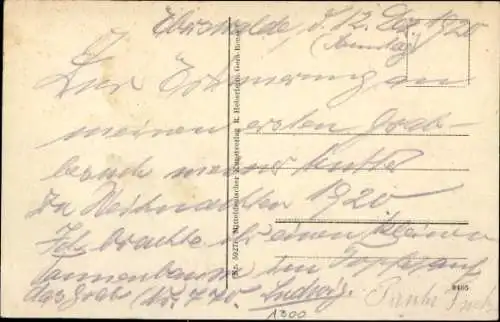 Eberswalde, d. 12. Dez. 1920
(Sonntag)
Zur Erinnerung an
meinen ersten Grab-
besuch meiner Mutter
zu Weihnachten 1920
Ich brachte ihr einen kleinen
Tannenbaum im Topf auf
das Grab (Nr. 770. Ludwig.
Mitteldeutscher Kunstverlag R. Heberlein, Gera-Reuss
9405
1300